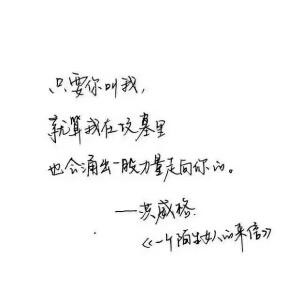 只要你叫我，
就算我在坟墓里
也会涌出一股力量走向你的。
——茨威格
《一个陌生女人的来信》